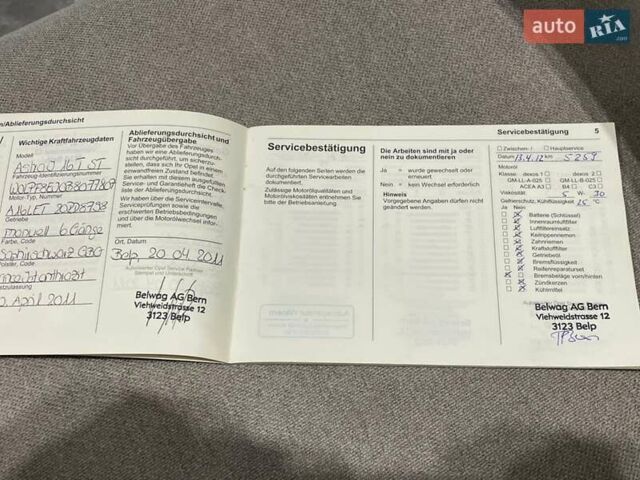 auto RIA
.com
n/Ablieferungsdurchsicht
Wichtige Kraftfahrzeugdaten
Modell
Astra J 1.6T ST
Fahrzeug-Identifizierungsnummer
Motor-Typ, Nummer
A16LET
Getriebe
manuell 6 Gänge
Farbe, Code
Saphirschwarz
Polster, Code
April 2011
Ablieferungsdurchsicht und
Fahrzeugübergabe
Vor Übergabe des Fahrzeuges
haben wir eine Ablieferungs-
durchsicht durchgeführt, um sicherzu-
stellen, dass sich Ihr Opel in
einwandfreien Zustand befindet.
Sie erhalten mit diesem ausgefüllten
Service- und Garantieheft die Check-
liste der Ablieferungsdurchsicht.
Wir haben über die Serviceintervalle,
Serviceprüfungen sowie die
erschwerten Betriebsbedingungen
und über die Mobilservice
informiert.
Ort, Datum
Belp, 20.04.2011
Autorisierter Opel Service Partner
Stempel und Unterschrift
Belwag AG Bern
Viehweidstrasse 12
3123 Belp
Servicebestätigung
Auf den folgenden Seiten werden die
durchgeführten Servicearbeiten
dokumentiert.
Zulässige Motorölqualitäten und
Motorölviskositäten entnehmen Sie
bitte der Betriebsanleitung.
Die Arbeiten sind mit ja oder
nein zu dokumentieren
Ja = wurde gewechselt oder
erneuert
Nein = kein Wechsel erforderlich
Hinweis
Vorgegebene Angaben dürfen nicht
geändert werden.
Servicebestätigung 5
Zwischen- / Hauptservice
Datum 13.4.12 km 5259
Motoröl
Klasse: dexos 1 dexos 2
GM-LL-A-025 GM-LL-B-025
ACEA A3 B4 C3
Viskosität: 5 W- 30
Gefrierschutz, Kühlflüssigkeit °C
Ja Nein
Batterie (Schlüssel)
Innenraumluftfilter
Luftfiltereinsatz
Keilrippenriemen
Zahnriemen
Kraftstofffilter
Getriebeöl
Bremsflüssigkeit
Reifenreparaturset
Bremsbeläge vorn/hinten
Zündkerzen
Kühlmittel
Belwag AG Bern
Viehweidstrasse 12
3123 Belp